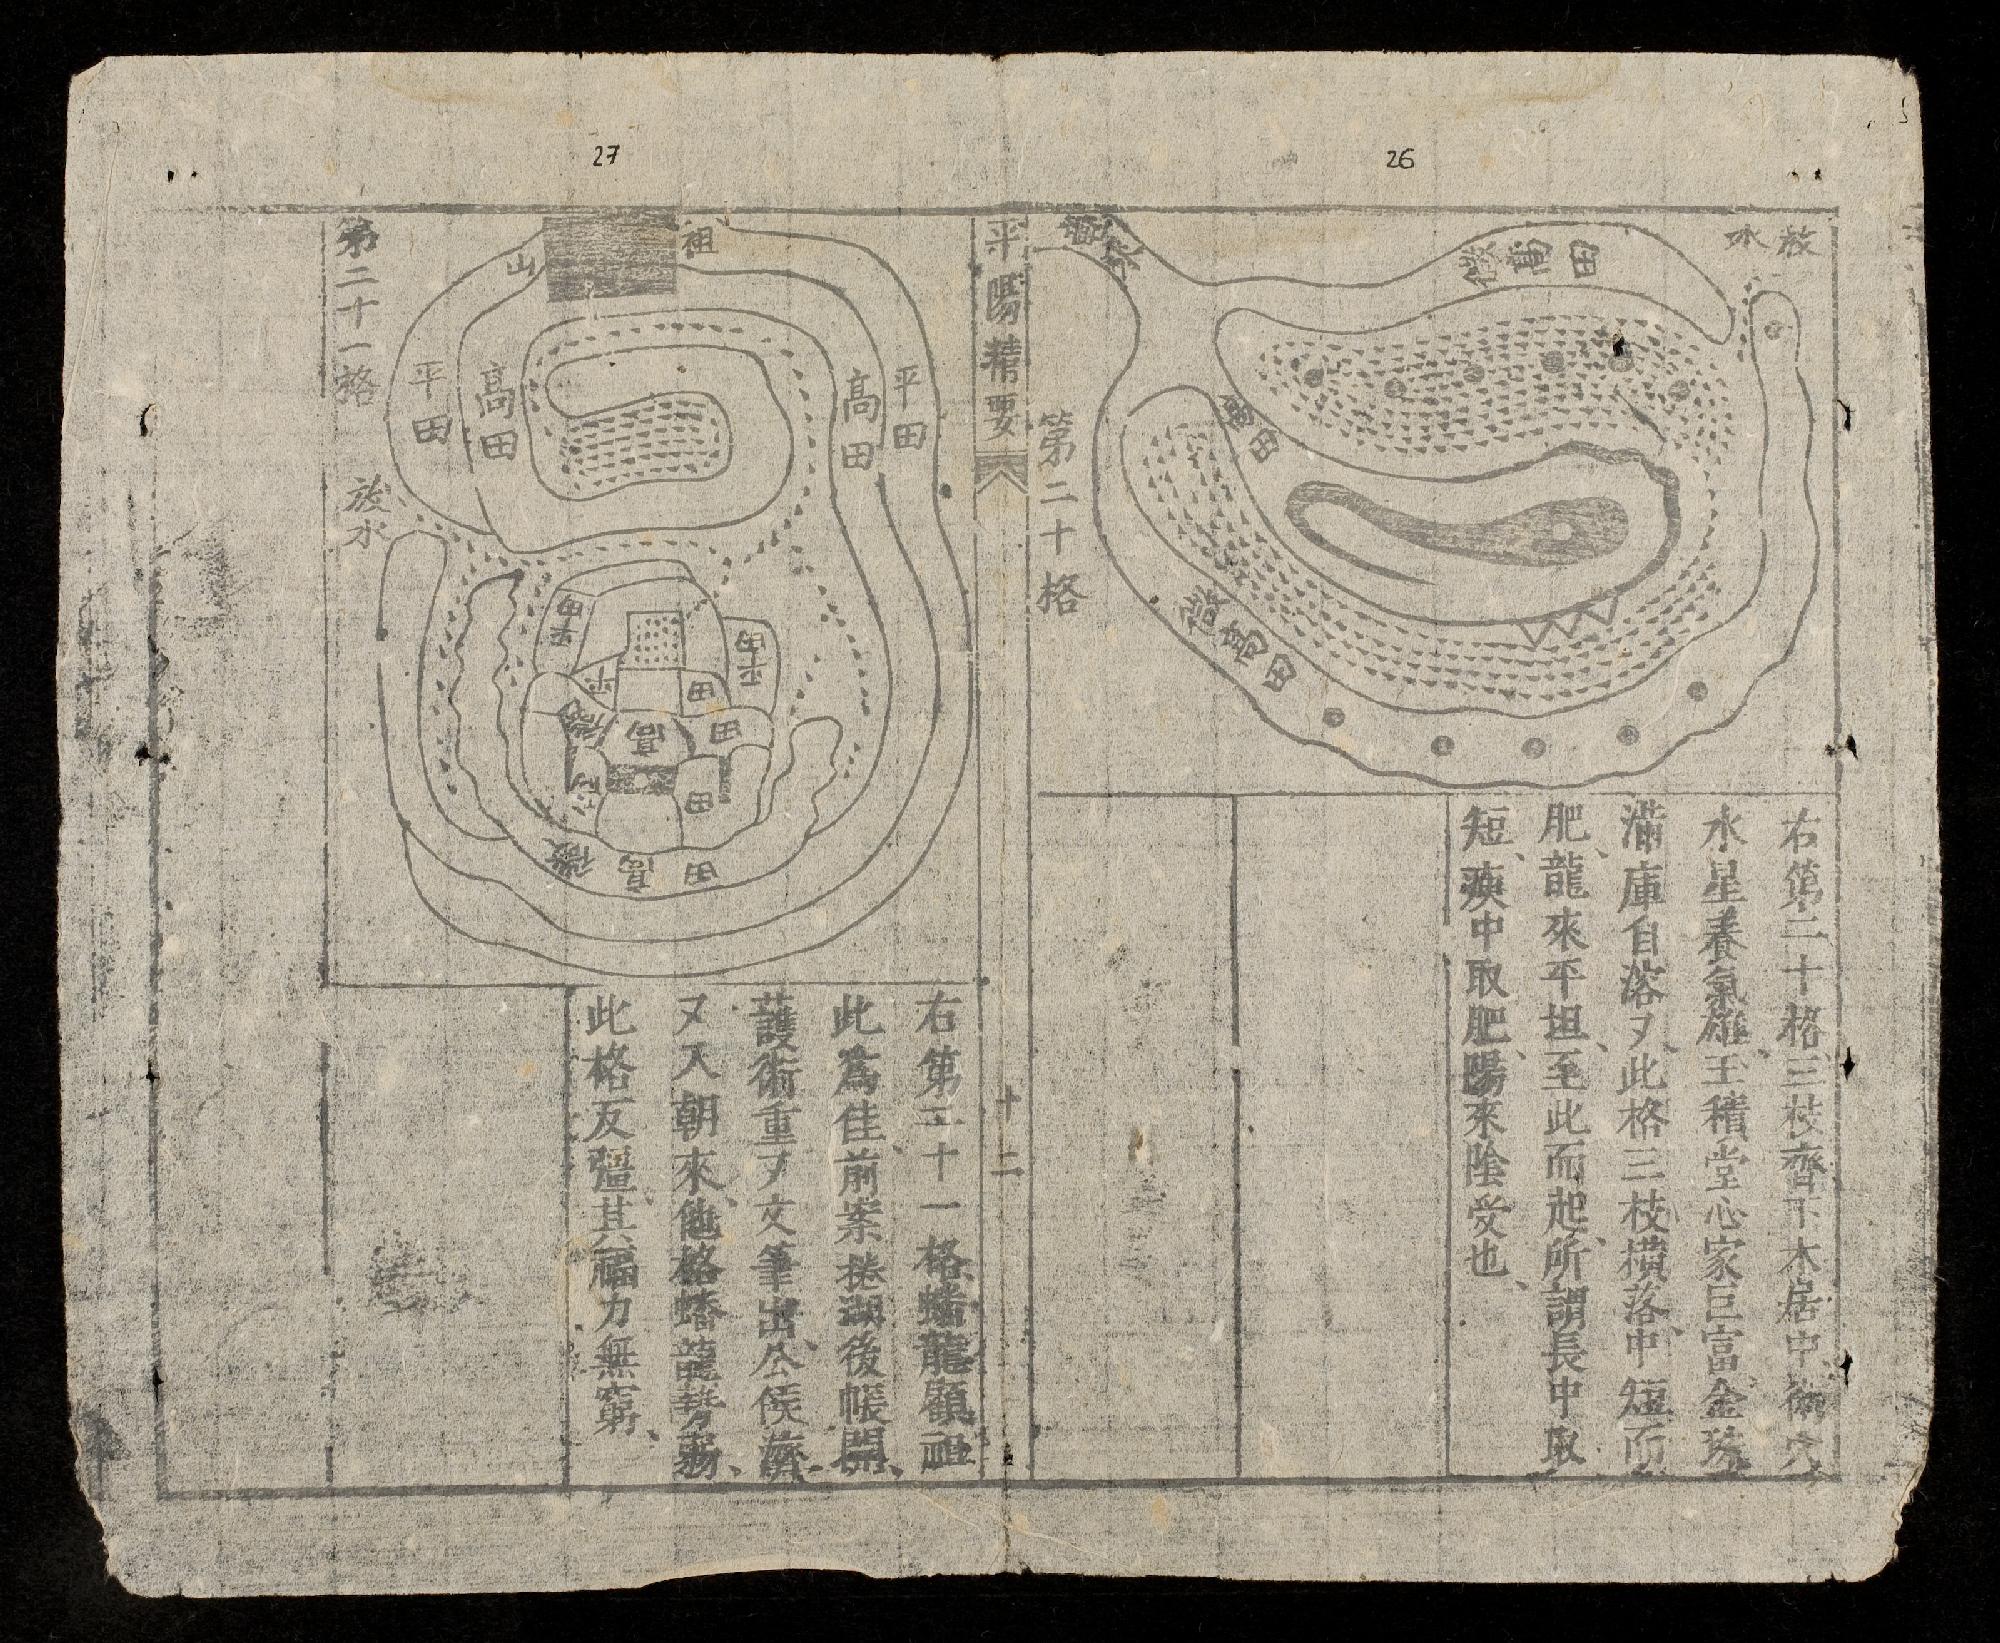 26
放水
微高田
高田
微高田
第二十格
右第二十格三枝齊下木居中衞穴
水星養氣雄王積堂心家巨富金珠
滿庫自落又此格三枝橫落中短而
肥龍來平坦至此而起所謂長中取
短瘐中取肥陽來陰受也
平陽精要
十二
27
祖山
平田
高田
高田
平田
放水
平田
平田
田
田
高
田
微高田
第二十一格
右第二十一格蟠龍顧祖
此爲佳前案捲湖後帳開
護衛重又文筆出公侯濟
又入朝來他格蟠龍勢弱
此格反彊其福力無窮